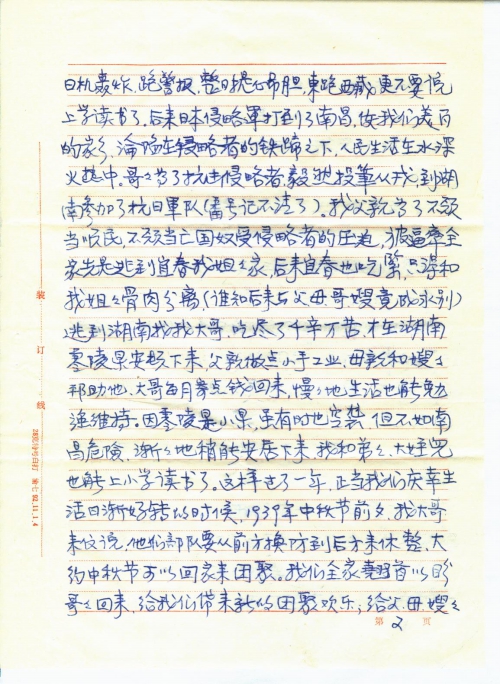 日机轰炸，跑警报，整日提心吊胆，东跑西藏，更不要说
上学读书了。后来日本侵略軍打到了南昌，使我们美丽
的家乡，淪陷在侵略者的铁蹄之下，人民生活在水深
火热中。哥々为了抗击侵略者，毅然投筆从戎，到湖
南参加了抗日軍队（番号记不清了）。我父親为了不愿
当顺民，不愿当亡国奴受侵略者的压迫，被逼率全
家先是逃到宜春我姐々家，后来宜春也吃緊，只得和
我姐々骨肉分离，（谁知后来与父母哥嫂竟成永别）
逃到湖南找我大哥，吃尽了千辛万苦，才在湖南
零陵县安顿下来，父親做点小手工业，母親和嫂々
邦助他，大哥每月寄点钱回来，慢々地生活也能勉
强维持。因零陵是小县，虽有时也空襲，但不如南
昌危險，漸々地稍能安居下来，我和弟々、大姪児
也能上小学读书了。这样过了一年，正当我们庆幸生
活日漸好转的时候，1939年中秋节前夕，我大哥
来信说，他们部队要从前方換防到后方来休整，大
约中秋节可以回家来团聚。我们全家翹首以盼
哥々回来，给我们带来新的团聚欢乐；给父、母、嫂々
第 2 页
装
订
线